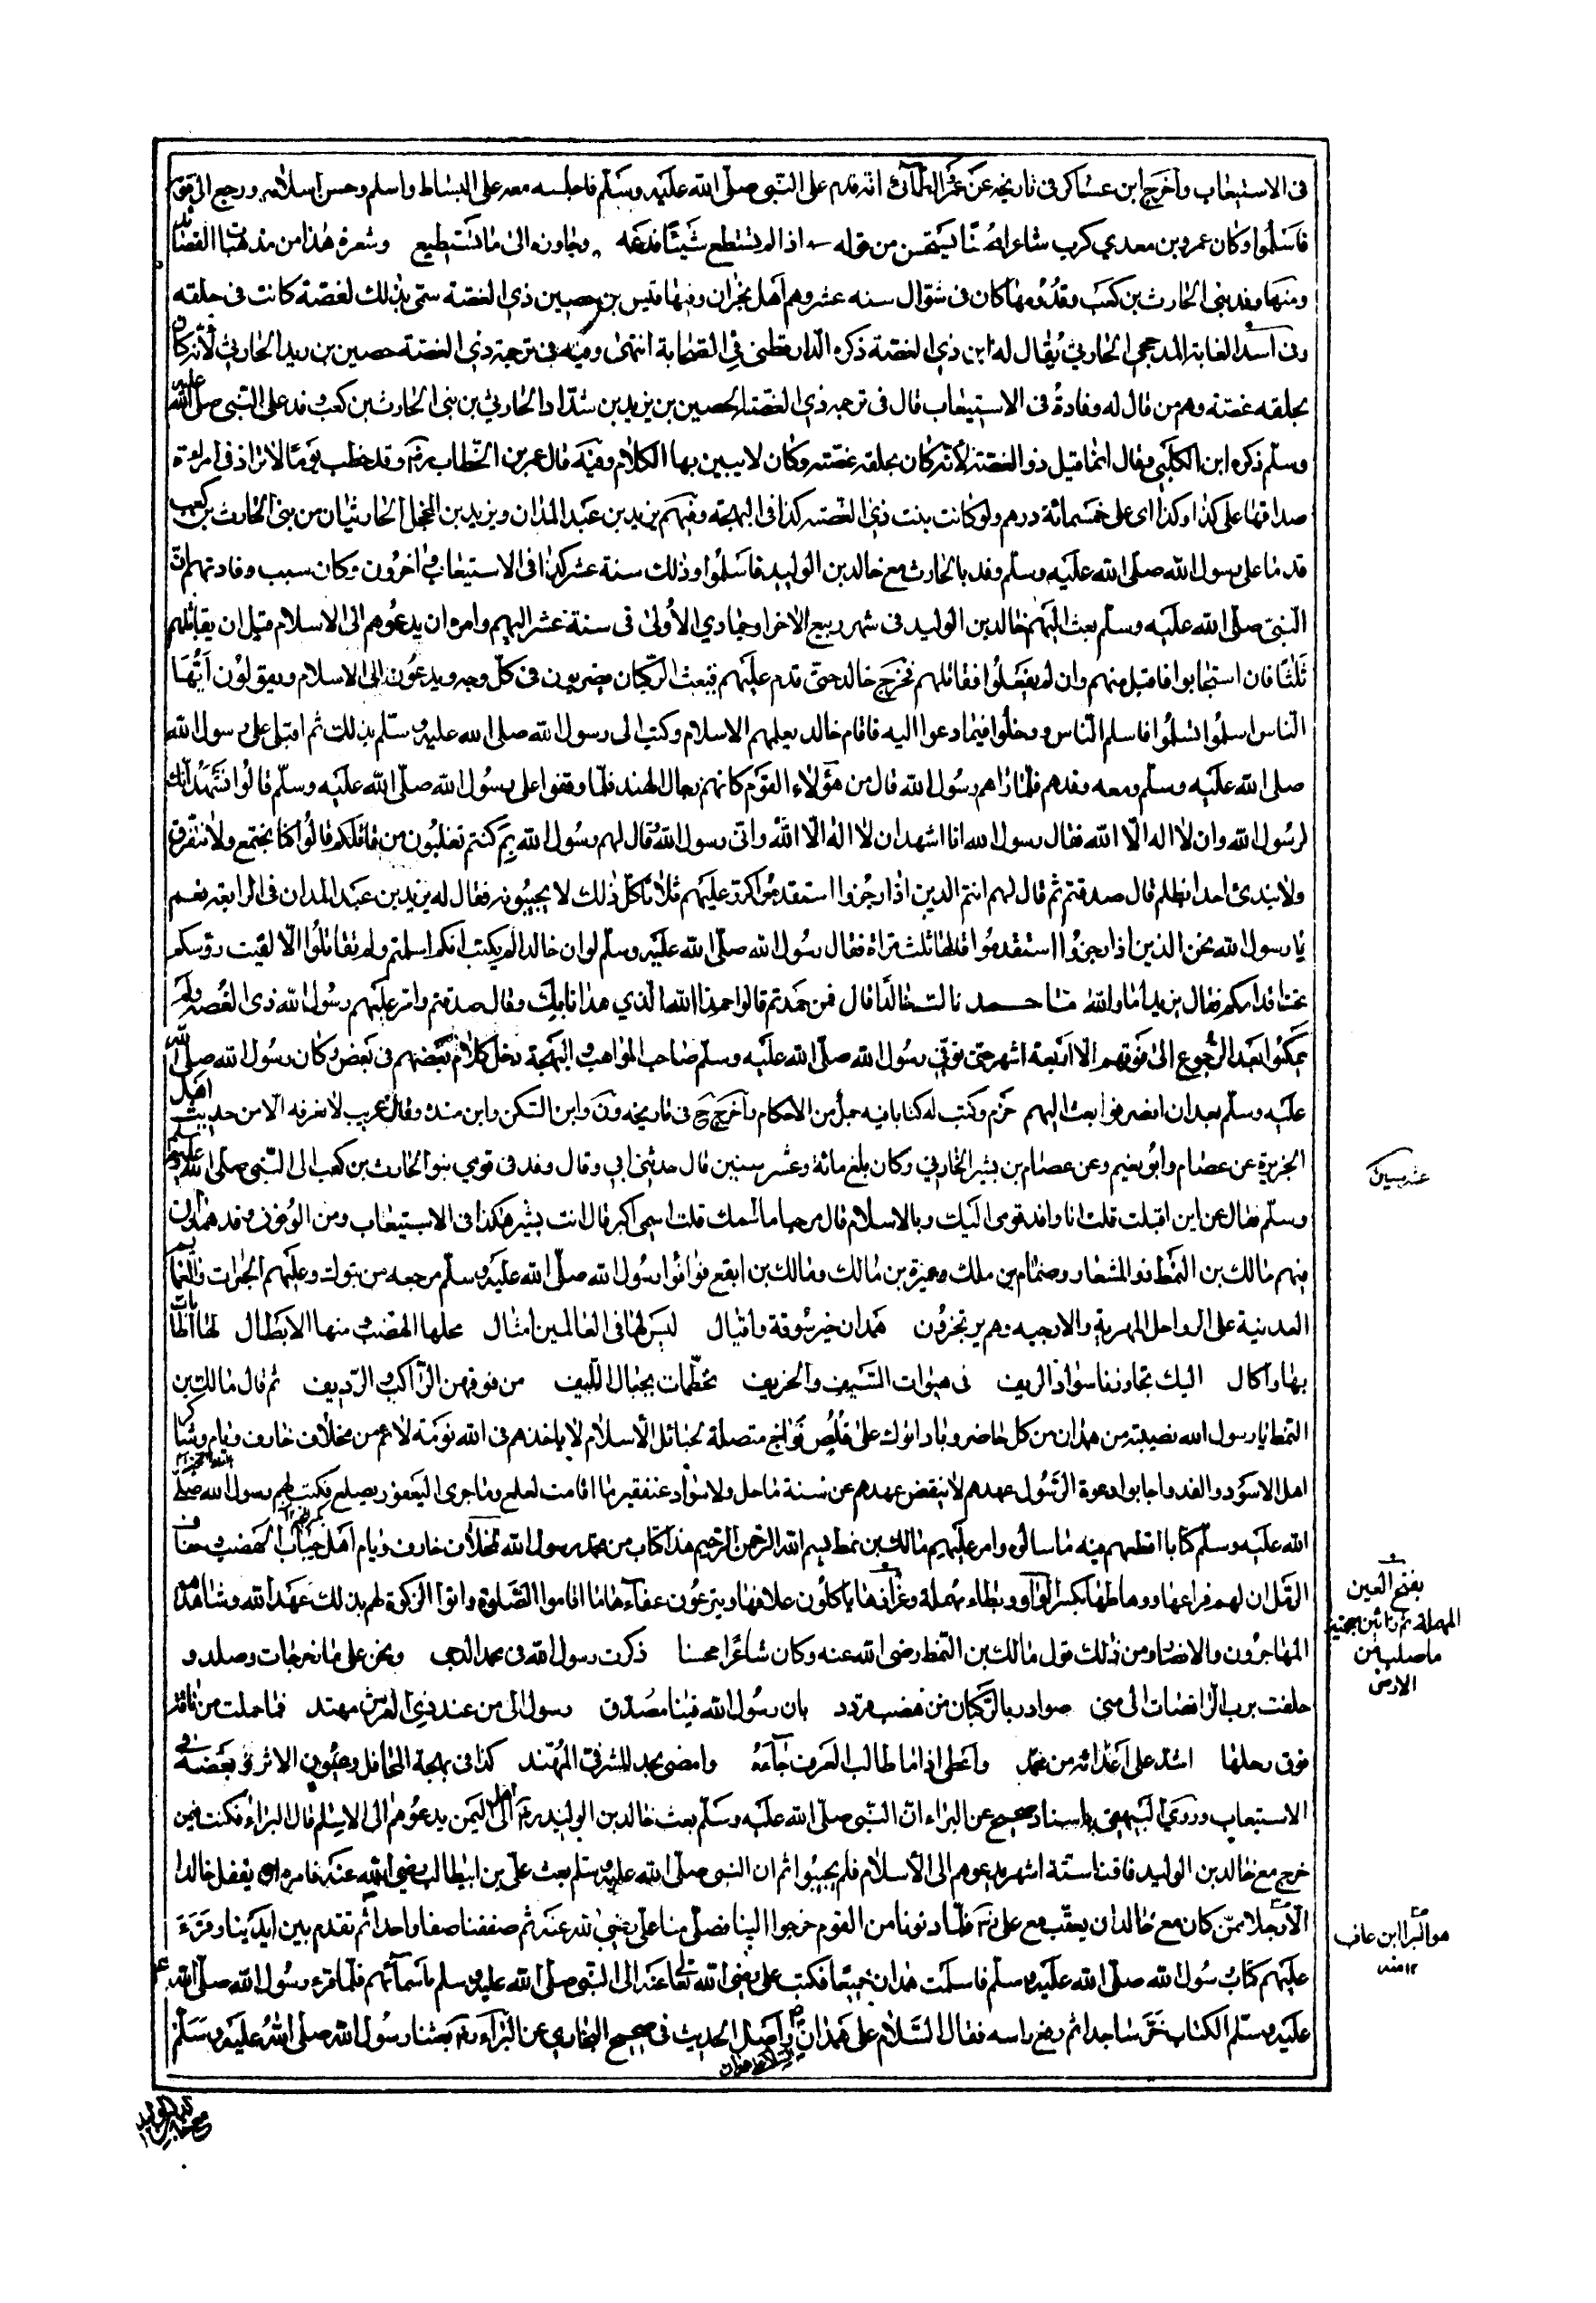 فى الاستيعاب وأخرج ابن عساكر فى تاريخه عن عمر الطائى انه قدم على النبى صلى الله عليه وسلم فاجلسه معه على البساط واسلم وحسن اسلامه ورجع الى قومه
فاسلموا وكان عمرو بن معدي كرب شاعرا ممّا يستحسن من قوله اذا لم تستطع شيئا فدعه وجاوزه الى ما تستطيع وشعره هذا من مذهبات القصائد
ومنها وفد بنى الحارث بن كعب وقدومها كان فى شوّال سنه عشر وهم اهل نجران وفيها قيس بن حصين ذي الغصّة سمّى بذلك لغصّة كانت فى حلقه
وفى اسد الغابة المدحجى الحارثي يقال له ابن ذي الغصّة ذكره الدارقطنى فى الصحابة انتهى وفيه فى ترجمة ذي الغصّة حصين بن يزيد الحارثي لأنه كان
بحلقه غصّة وهم من قال له وفادةُ فى الاستيعاب قال فى ترجمة ذي الغصّة الحصين بن يزيد بن شدّاد الحارثي من بنى الحارث بن كعب وفد على النبى صلى الله عليه
وسلّم ذكره ابن الكلبى وقال انما قيل ذو الغصّة لأنه كان بحلقه غصّة وكان لا يبين بها الكلام وفيه قال عمر بن الخطاب رضه وقد خطب يوما لا تزاد فى امراة
صداقها على كذا وكذا اى على خمسمائة درهم ولو كانت بنت ذي الغصّة كذا فى البهجة وفيهم يزيد بن عبد المدان ويزيد بن المحجل الحارثيان من بنى الحارث بن كعب
قدما على رسول الله صلى الله عليه وسلم وفد بالحارث مع خالد بن الوليد فاسلموا وذلك سنة عشر كذا فى الاستيعاب وآخرون وكان سبب وفادتهم انّ
النبى صلّى الله عليه وسلّم بعث اليهم خالد بن الوليد فى شهر ربيع الاخر او جمادي الأولى فى سنة عشر اليهم وامره ان يدعوهم الى الاسلام قبل ان يقاتلهم
ثلثًا فان استجابوا فاقبل منهم وان لم يفعلوا فقاتلهم فخرج خالد حتى قدم عليهم فبعث الركبان يضربون فى كلّ وجه ويدعون الى الاسلام ويقولون أيّها
الناس اسلموا تسلموا فاسلم الناس ودخلوا فيما دعوا اليه فاقام خالد يعلمهم الاسلام وكتب الى رسول الله صلى الله عليه وسلّم بذلك ثم اقبل على رسول الله
صلى الله عليه وسلّم ومعه وفدهم فلمّا رٰاهم رسول الله قال من هؤلاء القوم كانهم رجال الهند فلمّا وقفوا على رسول الله صلى الله عليه وسلّم قالوا نشهد انك
لرسول الله وان لا اله الّا الله فقال رسول الله انا اشهد ان لا اله الّا الله وانى رسول الله قال لهم رسول الله بم كنتم تغلبون من قاتلكم قالوا كنا نجتمع ولا نتفرق
ولا نبدئ احدا بظلم قال صدقتم ثم قال لهم انتم الذين اذا زجروا استقدموا كررت عليهم ثلاثا كلّ ذلك لا يجيبونه فقال له يزيد بن عبد المدان فى الرابعة نعم
يا رسول الله نحن الذين اذا زجروا استقدموا قالها ثلث مراة فقال رسول الله صلّى الله عليه وسلّم لو ان خالدا لم يكتب انكم اسلمتم ولم تقاتلوا الّا لقيت رؤسكم
تحت اقدامكم فقال يزيد اما والله ما حمدناك خالدا قال فمن حمدتم قالوا حمدنا الله الذي هدانا بك وقال صدقتم وامر عليهم رسول الله ذي الغصه ولم
يمكثوا بعد الرجوع الى قومهم الّا اربعة اشهر حتى توفّي رسول الله صلّى الله عليه وسلّم صاحب المواهب والبهجة دخل كلام بعضهم فى بعض وكان رسول الله صلى الله
عليه وسلّم بعد ان انصرفوا بعث اليهم حزم وكتب له كتابا فيه جمل من الاحكام وأخرج خ فى تاريخه ون وابن السكن وابن منده وقال غريب لا نعرفه الّا من حديث اهل
الجزيرة عن عصام وابو نعيم وعن عصام بن بشير الحارثي وكان بلغ مائة وعشر سنين قال حدثنى ابي وقال وفد فى قومي بنو الحارث بن كعب الى النبى صلى الله عليه
وسلّم فقال من اين اقبلت قلت انا وافد قومى اليك وبالاسلام قال مرحبا ما اسمك قلت اسمى اكبر قال انت بشير هكذا فى الاستيعاب ومن الوفود وفد همدان
منهم مالك بن النمط ذو المشعار وضمام بن ملك وعميرة بن مالك ومالك بن ايفع فواتوا رسول الله صلى الله عليه وسلّم مرجعه من تبوك وعليهم الحبرات والعمائم
العدنية على الرواحل المهرية والارحبيه وهم يرتجزون همدان خير سوقة واقيال ليس لها فى العالمين امثال محلها الهضب ومنها الابطال لها اطابات
بها واكال اليك تجاوزنا سواد الريف فى هبوات الصيف والخريف مخطّمات بحبال الليف من فوقهن الراكب والرديف ثم قال مالك بن
النمط يا رسول الله نصية من همدان من كل حاضر وباد اتوك على قلص نواج متصلة بحبائل الاسلام لا ياخذهم فى الله لومة لائم من مخلاف خارف ويام وشاكر
اهل الاسود والقد واجابوا دعوة الرسول عهدهم لا ينقض عهدهم عن سنة ماحل ولا سواد عنقفير ما اقامت لعلع وما جرى اليعفور بصلع فكتب لهم رسول الله صلى
الله عليه وسلم كتابا اقطعهم فيه ما سالوه وامر عليهم مالك بن نمط بسم الله الرحمن الرحيم هذا كتاب من محمد رسول الله لمخلاف خارف ويام اهل جناب الهضب وحفاف
الرمل ان لهم فراعها ووهاطها بكسر الواو وبطاء مهملة وعزازها ياكلون علافها ويرعون عفاءها ما اقاموا الصلوة واتوا الزكوة لهم بذلك عهد الله وشاهدهم
المهاجرون والانصار ومن ذلك قول مالك بن النمط رضى الله عنه وكان شاعرا محسنا ذكرت رسول الله فى فحمة الدجى ونحن على ما نحرجات وصلدد
حلفت برب الراقصات الى منى صوادر بالركبان من هضب قردد بان رسول الله فينا مصدق رسول اتى من عند ذي العرش مهتد فما حملت من ناقة
فوق رحلها اشد على اعدائه من محمد واعطى اذا ما طالب العرف جاءه وامضى بحد المشرفى المهنّد كذا فى بهجة المحافل وعيون الاثر وبعضه فى
الاستيعاب وروي البيهقى باسناد صحيح عن البراء انّ النبى صلّى الله عليه وسلّم بعث خالد بن الوليد رضه الى اهل اليمن يدعوهم الى الاسلام قال البراء فكنت فيمن
خرج مع خالد بن الوليد فاقمنا ستّة اشهر يدعوهم الى الاسلام فلم يجيبوا ثم ان النبى صلى الله عليه وسلم بعث على بن ابيطالب رضى الله عنه فامره ان يقفل خالدا
الّا رجلا ممن كان مع خالد ان يعقب مع على رضه فلمّا دنونا من القوم خرجوا الينا فصلّى بنا على رضى الله عنه ثم صففنا صفا واحدا ثم تقدم بين ايدينا وقرء
عليهم كتاب رسول الله صلّى الله عليه وسلّم فاسلمت همدان جميعا فكتب على رضى الله تعالى عنه الى النبى صلى الله عليه وسلم باسلامهم فلمّا قرء رسول الله صلى الله
عليه وسلّم الكتاب خرّ ساجدا ثم رفع راسه فقال السّلام على همدان السلام على همدان وأصل الحديث فى صحيح البخاري عن البراء رضه بعثنا رسول الله صلى الله عليه وسلم
عشر سنين
بفتح العين
المهملة ثم زائين معجمتين
ما صلب من
الارض
هو البراء ابن عازب
١٢ منه